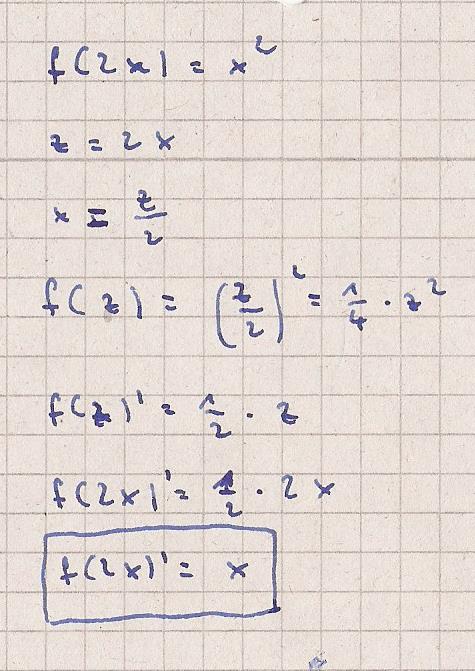 f(2x) = x²
z = 2x
x = z/2
f(z) = (z/2)² = 1/4 · z²
f(z)' = 1/2 · z
f(2x)' = 1/2 · 2x
f(2x)' = x